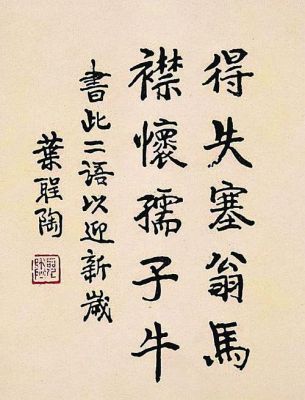 得失塞翁馬
襟懷孺子牛
書此二语以迎新嵗
葉聖陶